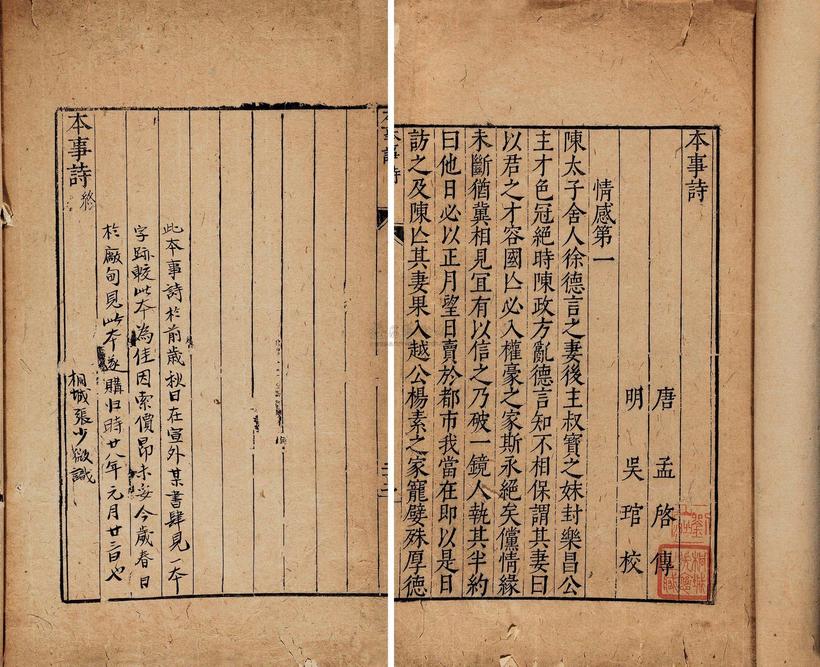 本事詩
唐 孟 啓 傳
明 吳 琯 校
情感第一
陳太子舍人徐德言之妻後主叔寶之妹封樂昌公
主才色冠絕時陳政方亂德言知不相保謂其妻曰
以君之才容國亾必入權豪之家斯永絕矣儻情緣
未斷猶冀相見冝有以信之乃破一鏡人執其半約
曰他日必以正月望日賣於都市我當在即以是日
訪之及陳亾其妻果入越公楊素之家寵嬖殊厚德
本事詩
此本事詩於前歲秋日在宣外某書肆見一本
字跡較此本為佳因索價昂未妥今歲春日
於廠甸見此本遂購归時廿八年元月廿三日也
桐城張少㧑識
本事詩 終